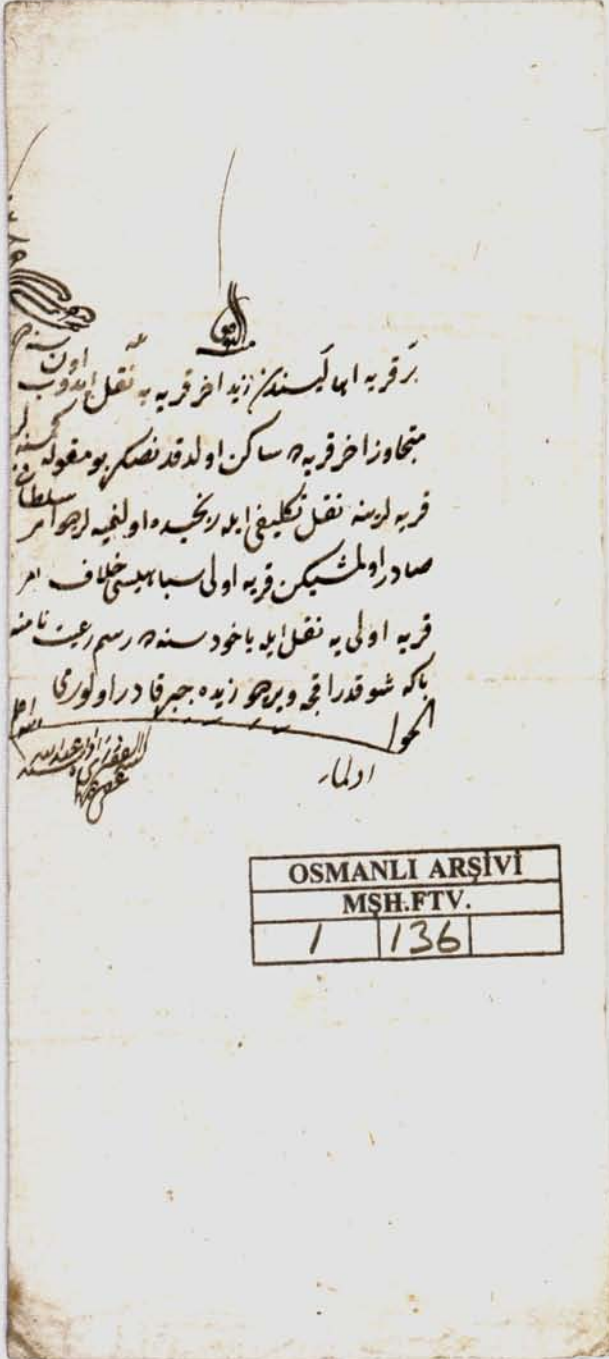 بر قریه اهالیسندن زید اخر قریه یه نقل ایدوب اون سنه
متجاوز اخر قریه ده ساکن اولدقدنصکره بو مقوله کمسنه لر
قریه لرینه نقل تکلیفی ایله رنجیده اولنمیه لر دیو امر سلطانی
صادر اولمشیکن قریه اولی سپاهیسی خلاف امر
قریه اولی یه نقل ایله یاخود سنه ده رسم رعیت نامنه
بکا شو قدر اقچه ویر دیو زیده جبره قادر اولورمی
الجواب الله اعلم
اولماز
OSMANLI ARŞİVİ
MŞH.FTV.
1 136